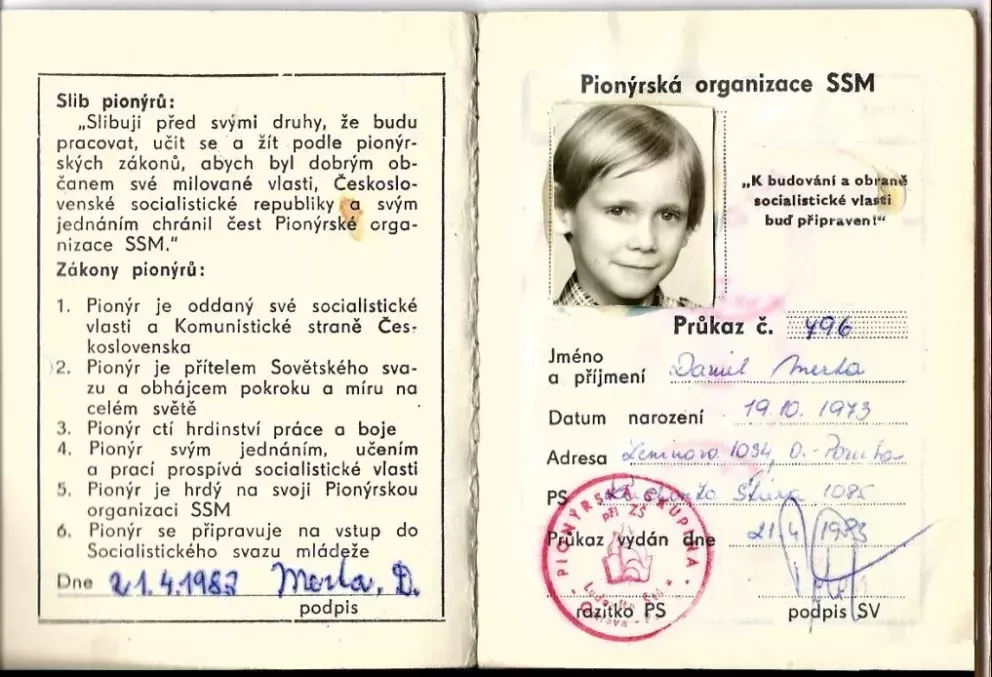 Slib pionýrů:
„Slibuji před svými druhy, že budu
pracovat, učit se a žít podle pionýr-
ských zákonů, abych byl dobrým ob-
čanem své milované vlasti, Českoslo-
venské socialistické republiky a svým
jednáním chránil čest Pionýrské orga-
nizace SSM."
Zákony pionýrů:
1. Pionýr je oddaný své socialistické
vlasti a Komunistické straně Čes-
koslovenska
2. Pionýr je přítelem Sovětského sva-
zu a obhájcem pokroku a míru na
celém světě
3. Pionýr ctí hrdinství práce a boje
4. Pionýr svým jednáním, učením
a prací prospívá socialistické vlasti
5. Pionýr je hrdý na svoji Pionýrskou
organizaci SSM
6. Pionýr se připravuje na vstup do
Socialistického svazu mládeže
Dne 21.4.1983 Merta, D.
podpis
Pionýrská organizace SSM
„K budování a obraně
socialistické vlasti
buď připraven!"
Průkaz č. 496
Jméno
a příjmení Daniel Merta
Datum narození 19.10.1973
Adresa Leninova 1094, O.-Poruba
PS Ludovíta Štúra 1085
Průkaz vydán dne 21.4.1983
PIONÝRSKÁ SKUPINA
při ZŠ
razítko PS podpis SV